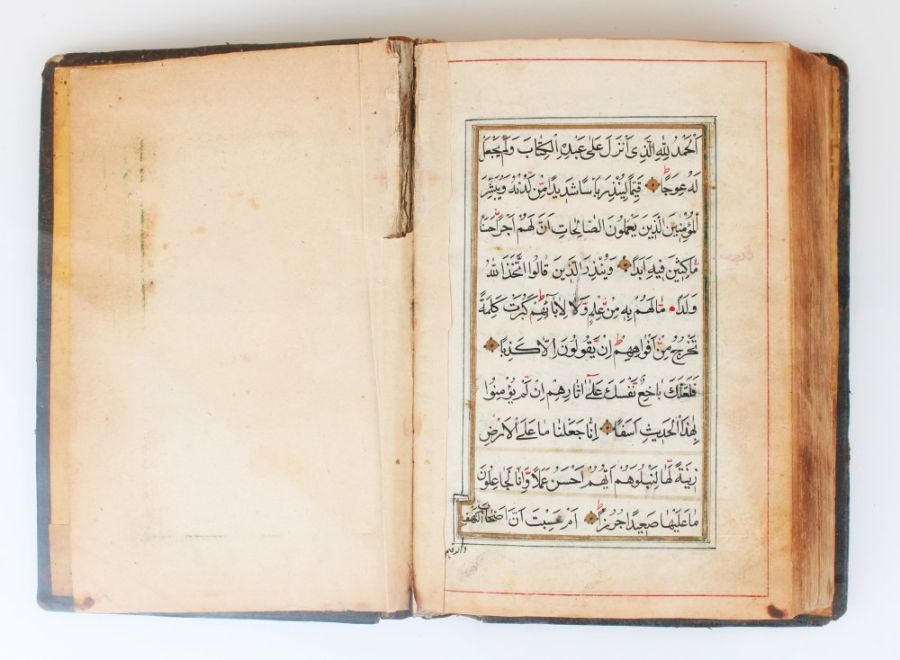 اَلْحَمْدُ لِلّٰهِ الَّذِی اَنْزَلَ عَلٰی عَبْدِهِ الْكِتَابَ وَلَمْ یَجْعَلْ
لَهُ عِوَجًا قَیِّمًا لِیُنْذِرَ بَاْسًا شَدِیدًا مِنْ لَدُنْهُ وَیُبَشِّرَ
الْمُؤْمِنِینَ الَّذِینَ یَعْمَلُونَ الصَّالِحَاتِ اَنَّ لَهُمْ اَجْرًا حَسَنًا
مَاكِثِینَ فِیهِ اَبَدًا وَیُنْذِرَ الَّذِینَ قَالُوا اتَّخَذَ اللّٰهُ
وَلَدًا مَا لَهُمْ بِهِ مِنْ عِلْمٍ وَلَا لِاٰبَائِهِمْ كَبُرَتْ كَلِمَةً
تَخْرُجُ مِنْ اَفْوَاهِهِمْ اِنْ یَقُولُونَ اِلَّا كَذِبًا
فَلَعَلَّكَ بَاخِعٌ نَفْسَكَ عَلٰی اٰثَارِهِمْ اِنْ لَمْ یُؤْمِنُوا
بِهٰذَا الْحَدِیثِ اَسَفًا اِنَّا جَعَلْنَا مَا عَلَی الْاَرْضِ
زِینَةً لَهَا لِنَبْلُوَهُمْ اَیُّهُمْ اَحْسَنُ عَمَلًا وَاِنَّا لَجَاعِلُونَ
مَا عَلَیْهَا صَعِیدًا جُرُزًا اَمْ حَسِبْتَ اَنَّ اَصْحَابَ الْكَهْفِ
والرقیم